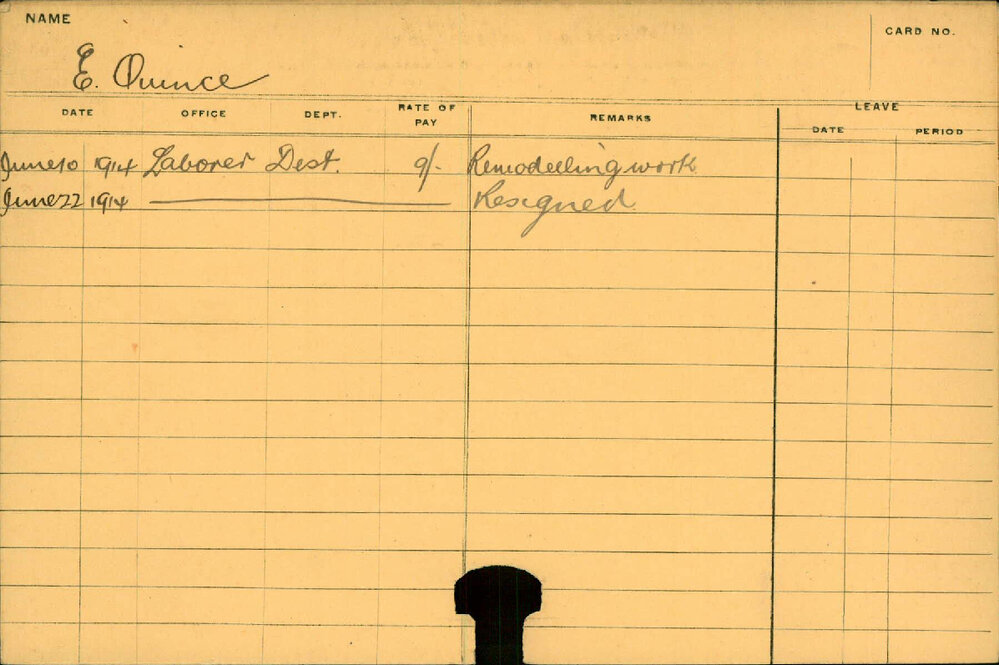 NAME
CARD NO.
E. Quince
DATE OFFICE DEPT. RATE OF PAY REMARKS LEAVE
DATE PERIOD
June 10 1914 Laborer Dest. 9/- Remodelling work
June 22 1914 Resigned